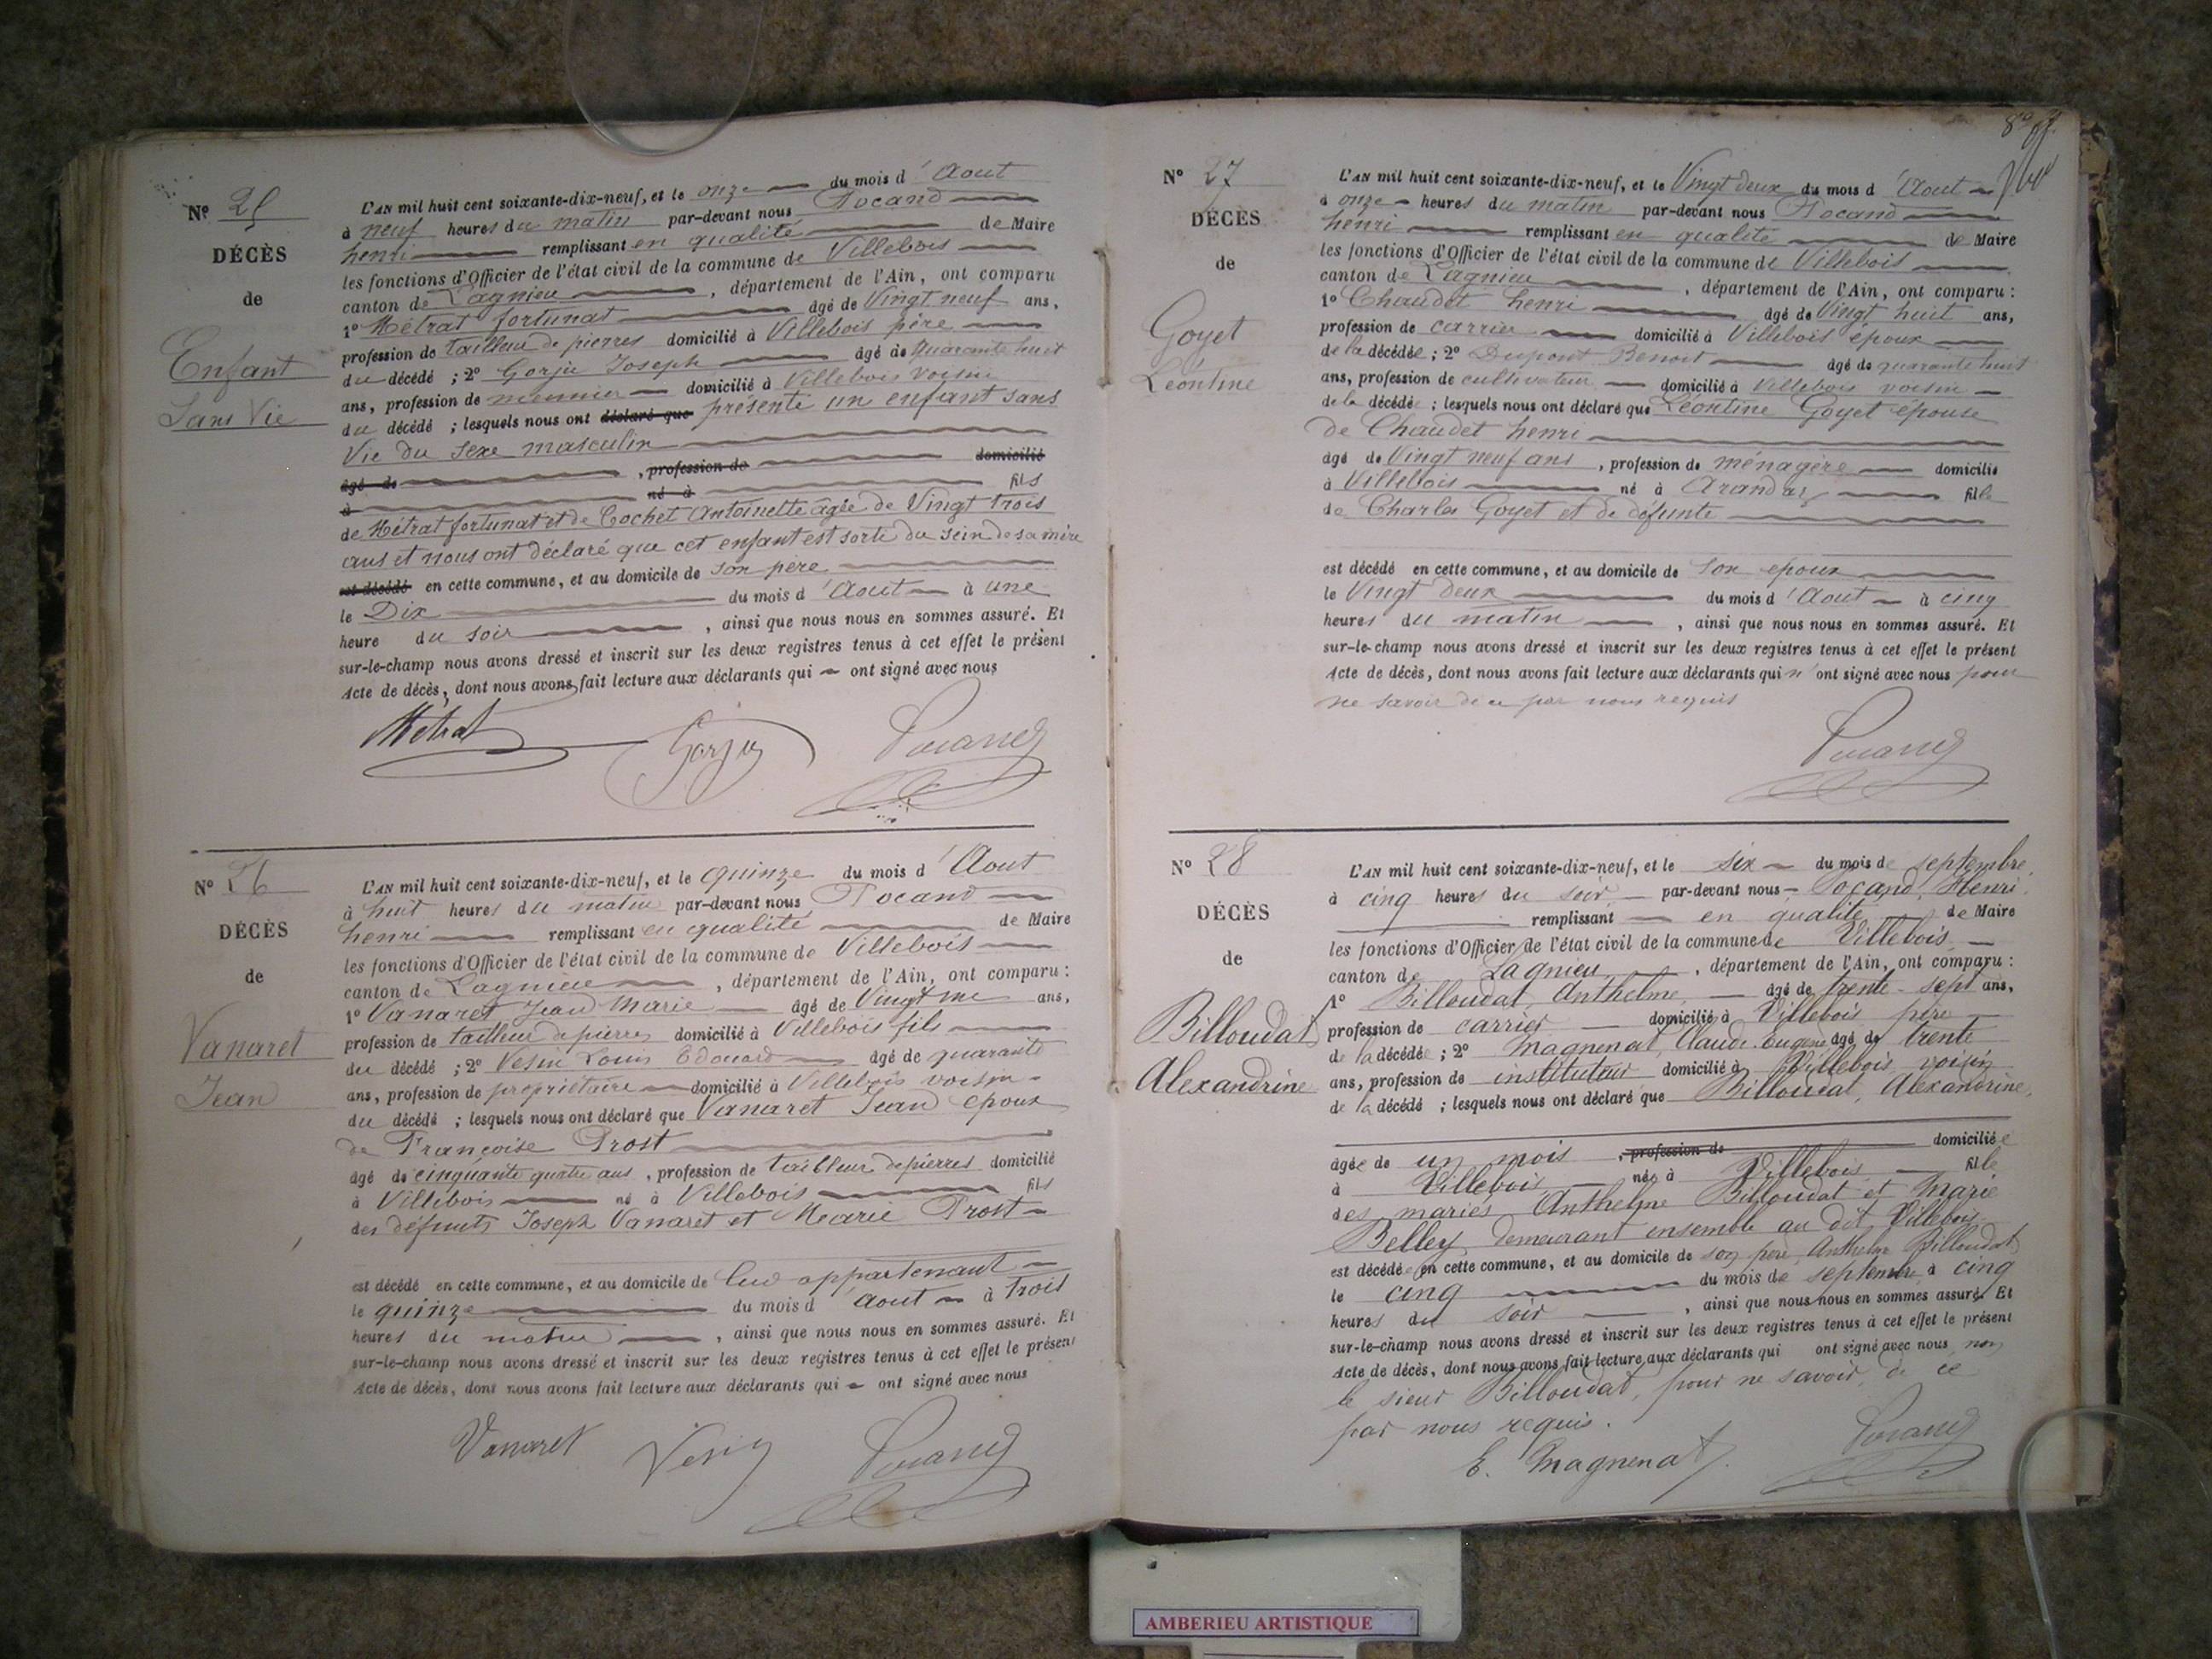 Nº 25
DÉCÈS
de
Enfant
Sans Vie
L'AN mil huit cent soixante-dix-neuf, et le onze du mois d'Aout
à neuf heures du matin par-devant nous Pocand
henri remplissant en qualité de Maire
les fonctions d'Officier de l'état civil de la commune de Villebois
canton de Lagnieu, département de l'Ain, ont comparu
1º Métrat fortunat âgé de Vingt neuf ans,
profession de tailleur de pierres domicilié à Villebois père
du décédé ; 2º Gorju Joseph âgé de Quarante huit
ans, profession de meunier domicilié à Villebois voisin
du décédé ; lesquels nous ont déclaré que présenté un enfant sans
Vie du sexe masculin
âgé de , profession de domicilié
à né à fils
de Métrat fortunat et de Cochet Antoinette âgée de Vingt trois
ans et nous ont déclaré que cet enfant est sorti du sein de sa mère
est décédé en cette commune, et au domicile de son père
le Dix du mois d'Aout à une
heure du soir, ainsi que nous nous en sommes assuré. Et
sur-le-champ nous avons dressé et inscrit sur les deux registres tenus à cet effet le présent
Acte de décès, dont nous avons fait lecture aux déclarants qui ont signé avec nous
Métrat Gorju Pocand
Nº 26
DÉCÈS
de
Vanaret
Jean
L'AN mil huit cent soixante-dix-neuf, et le quinze du mois d'Aout
à huit heures du matin par-devant nous Pocand
henri remplissant en qualité de Maire
les fonctions d'Officier de l'état civil de la commune de Villebois
canton de Lagnieu, département de l'Ain, ont comparu :
1º Vanaret Jean Marie âgé de Vingt ans,
profession de tailleur de pierres domicilié à Villebois fils
du décédé ; 2º Vesin Louis Edouard âgé de quarante
ans, profession de propriétaire domicilié à Villebois voisin
du décédé ; lesquels nous ont déclaré que Vanaret Jean époux
de Françoise Prost
âgé de cinquante quatre ans, profession de tailleur de pierres domicilié
à Villebois né à Villebois fils
des défunts Joseph Vanaret et Marie Prost
est décédé en cette commune, et au domicile de lui appartenant
le quinze du mois d'aout à trois
heures du matin, ainsi que nous nous en sommes assuré. Et
sur-le-champ nous avons dressé et inscrit sur les deux registres tenus à cet effet le présent
Acte de décès, dont nous avons fait lecture aux déclarants qui ont signé avec nous
Vanaret Vesin Pocand
Nº 27
DÉCÈS
de
Goyet
Léontine
L'AN mil huit cent soixante-dix-neuf, et le Vingt deux du mois d'Aout
à onze heures du matin par-devant nous Pocand
henri remplissant en qualité de Maire
les fonctions d'Officier de l'état civil de la commune de Villebois
canton de Lagnieu, département de l'Ain, ont comparu :
1º Chaudet henri âgé de Vingt huit ans,
profession de carrier domicilié à Villebois époux
de la décédée ; 2º Dupont Benoit âgé de quarante huit
ans, profession de cultivateur domicilié à Villebois voisin
de la décédée ; lesquels nous ont déclaré que Léontine Goyet épouse
de Chaudet henri
âgé de Vingt neuf ans, profession de ménagère domicilié
à Villebois né à Arandas fille
de Charles Goyet et de défunte
est décédé en cette commune, et au domicile de son époux
le Vingt Deux du mois d'Aout à cinq
heures du matin, ainsi que nous nous en sommes assuré. Et
sur-le-champ nous avons dressé et inscrit sur les deux registres tenus à cet effet le présent
Acte de décès, dont nous avons fait lecture aux déclarants qui n'ont signé avec nous pour
ne savoir de ce par nous requis
Pocand
Nº 28
DÉCÈS
de
Billoudat
Alexandrine
L'AN mil huit cent soixante-dix-neuf, et le six du mois de septembre
à cinq heures du soir par-devant nous Pocand, Henri
remplissant en qualité de Maire
les fonctions d'Officier de l'état civil de la commune de Villebois
canton de Lagnieu, département de l'Ain, ont comparu :
1º Billoudat, Anthelme, âgé de trente-sept ans,
profession de carrier domicilié à Villebois père
de la décédée ; 2º Magnenat, Claude Eugène âgé de trente
ans, profession de instituteur domicilié à Villebois voisin
de la décédé ; lesquels nous ont déclaré que Billoudat, Alexandrine,
âgée de un mois, profession de domiciliée
à Villebois née à Villebois fille
des mariés Anthelme Billoudat et Marie
Belley, demeurant ensemble au dit Villebois
est décédée en cette commune, et au domicile de son père Anthelme Billoudat
le cinq du mois de septembre à cinq
heures du soir, ainsi que nous nous en sommes assuré. Et
sur-le-champ nous avons dressé et inscrit sur les deux registres tenus à cet effet le présent
Acte de décès, dont nous avons fait lecture aux déclarants qui ont signé avec nous non
le sieur Billoudat, pour ne savoir, de ce
par nous requis.
E. Magnenat Pocand
AMBERIEU ARTISTIQUE